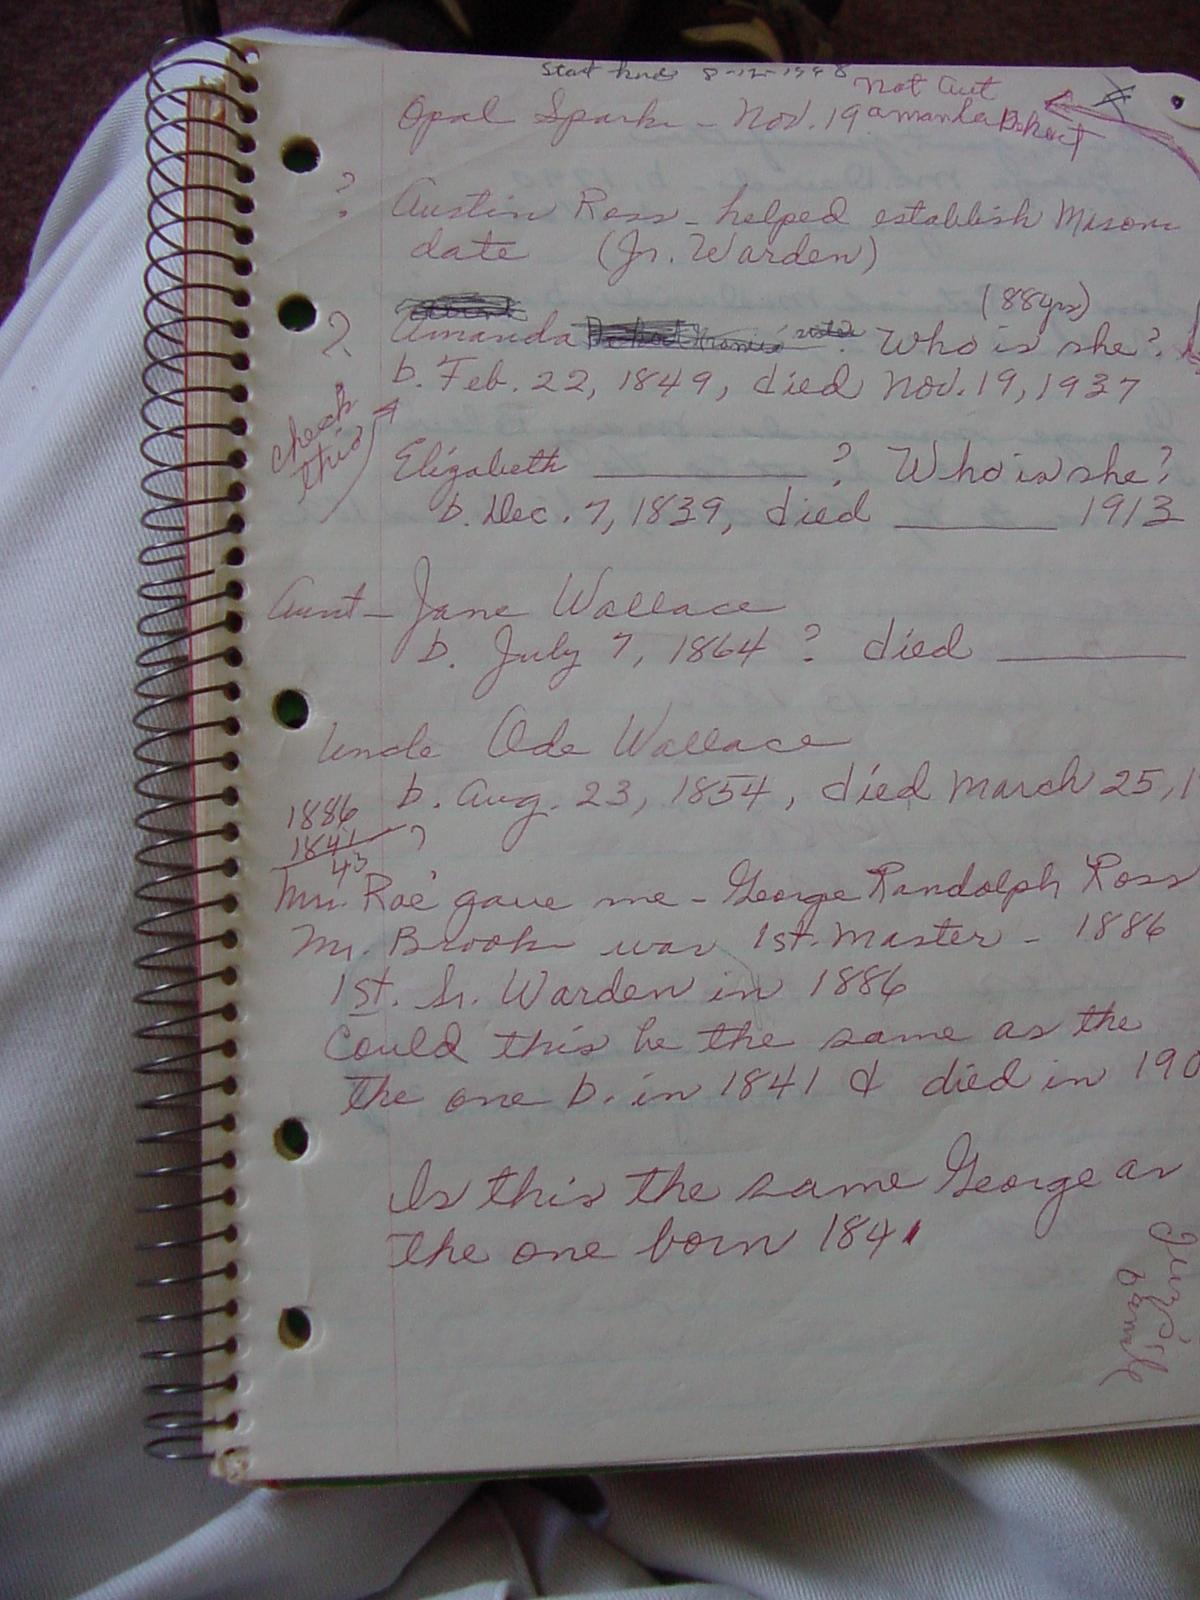 Start here 8-12-1998
Not Aut
Opal Spark - Nov. 19 Amanda
? Austin Ross - helped establish Mason
date (Jr. Warden)
(88yrs)
? Amanda ? Who is she?
b. Feb. 22, 1849, died Nov. 19, 1937
check
this
Elizabeth ________ ? Who is she?
b. Dec. 7, 1839, died ______ 1913
Aunt - Jane Wallace
b. July 7, 1864 ? died ______
Uncle Ode Wallace
b. Aug. 23, 1854, died March 25, 1
1886
1841 ?
43
Mr. Rae gave me - George Randolph Ross
Mr. Brook was 1st. Master - 1886
1st. Sr. Warden in 1886
Could this be the same as the
the one b. in 1841 & died in 190
Is this the same George as
the one born 1841